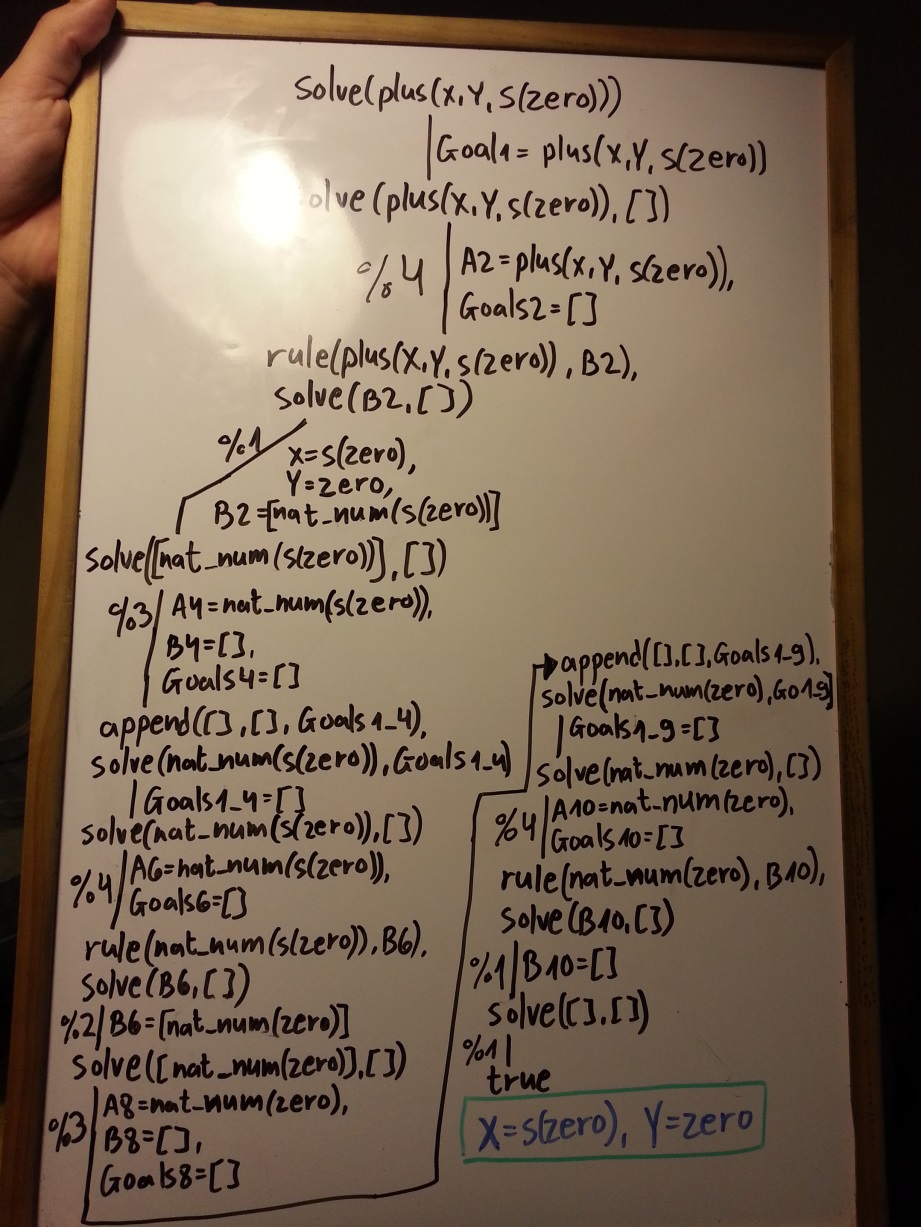 solve(plus(X,Y,s(zero)))
Goal1 = plus(X,Y,s(zero))
olve(plus(X,Y,s(zero)),[])
%4 A2=plus(X,Y,s(zero)),
Goals2=[]
rule(plus(X,Y,s(zero)),B2),
solve(B2,[])
%1 X=s(zero),
Y=zero,
B2=[nat_num(s(zero))]
solve([nat_num(s(zero))],[])
%3 A4=nat_num(s(zero)),
B4=[],
Goals4=[]
append([],[],Goals1_4),
solve(nat_num(s(zero)),Goals1_4)
Goals1_4=[]
solve(nat_num(s(zero)),[])
%4 A6=nat_num(s(zero)),
Goals6=[]
rule(nat_num(s(zero)),B6),
solve(B6,[])
%2 B6=[nat_num(zero)]
solve([nat_num(zero)],[])
%3 A8=nat_num(zero),
B8=[],
Goals8=[]
append([],[],Goals1_9),
solve(nat_num(zero),Go1_9)
Goals1_9=[]
solve(nat_num(zero),[])
%4 A10=nat_num(zero),
Goals10=[]
rule(nat_num(zero),B10),
solve(B10,[])
%1 B10=[]
solve([],[])
%1
true
X=s(zero), Y=zero